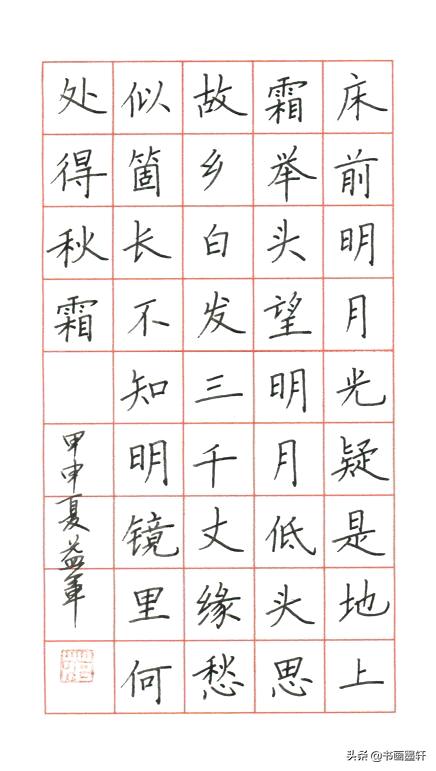 床前明月光疑是地上
霜举头望明月低头思
故乡白发三千丈缘愁
似箇长不知明镜里何
处得秋霜
甲申夏益军
头条 @书画墨轩